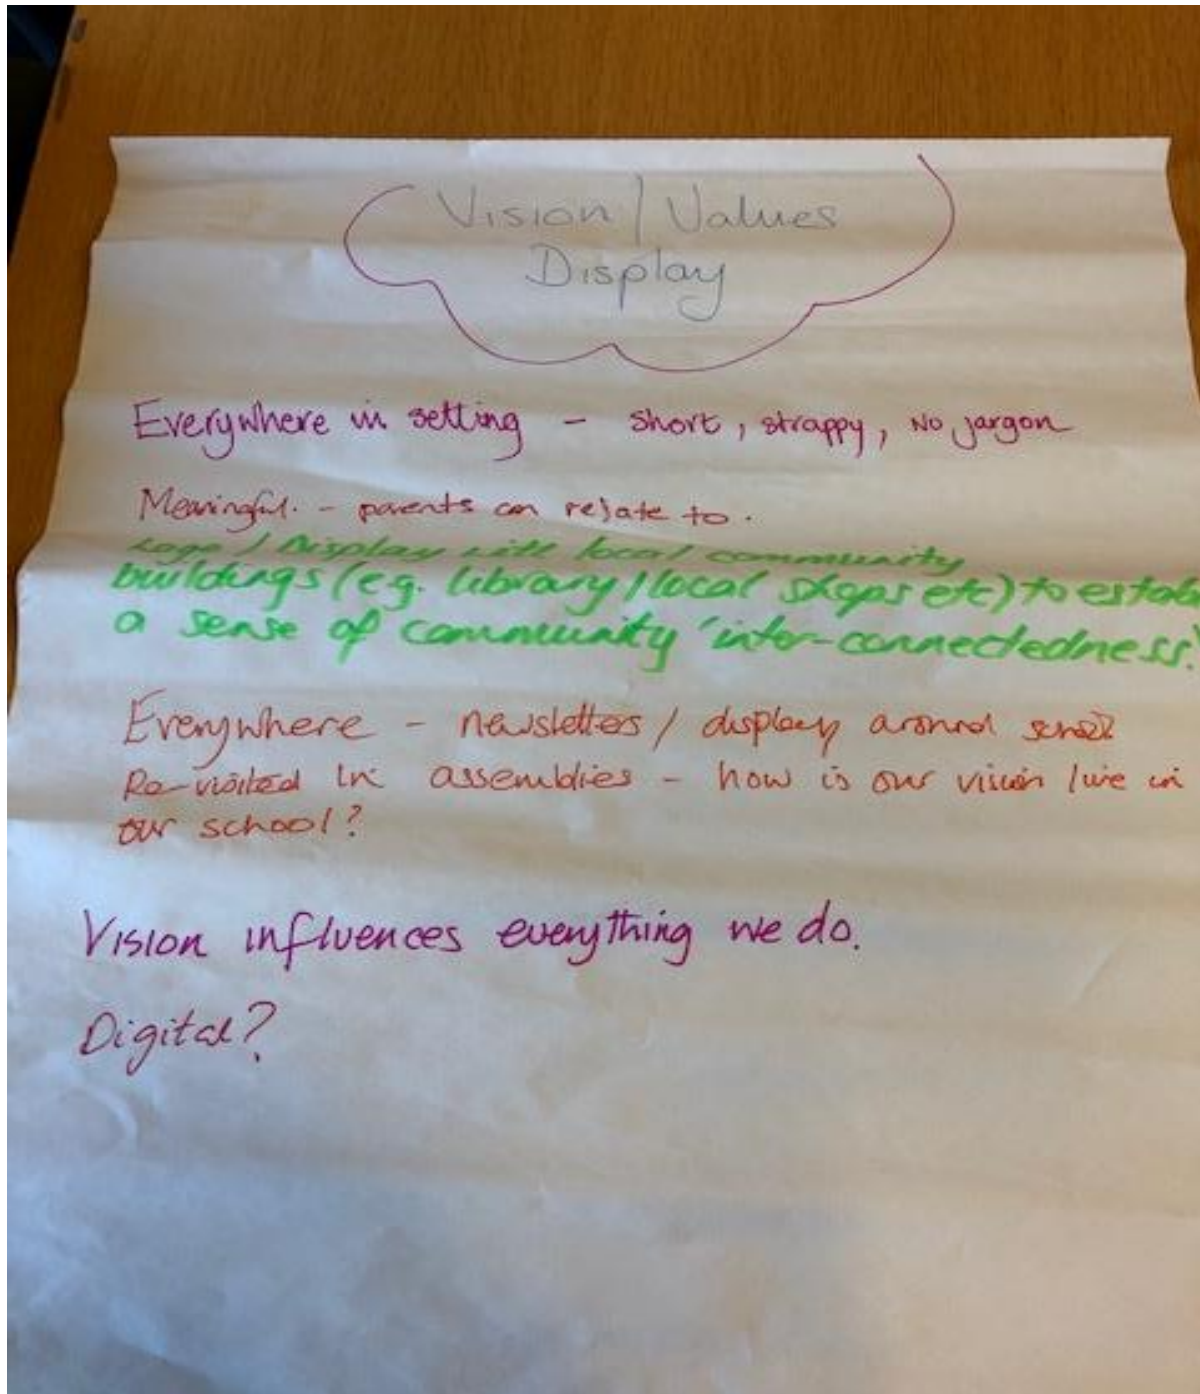 Vision / Values
Display
Everywhere in setting - short, strappy, No jargon
Meaningful. - parents can relate to.
Logo / Display with local community
buildings (eg. library / local shops etc) to estab
a sense of community 'inter-connectedness.'
Everywhere - newsletters / display around school
Re-visited in assemblies - how is our vision live in
our school?
Vision influences everything we do.
Digital?